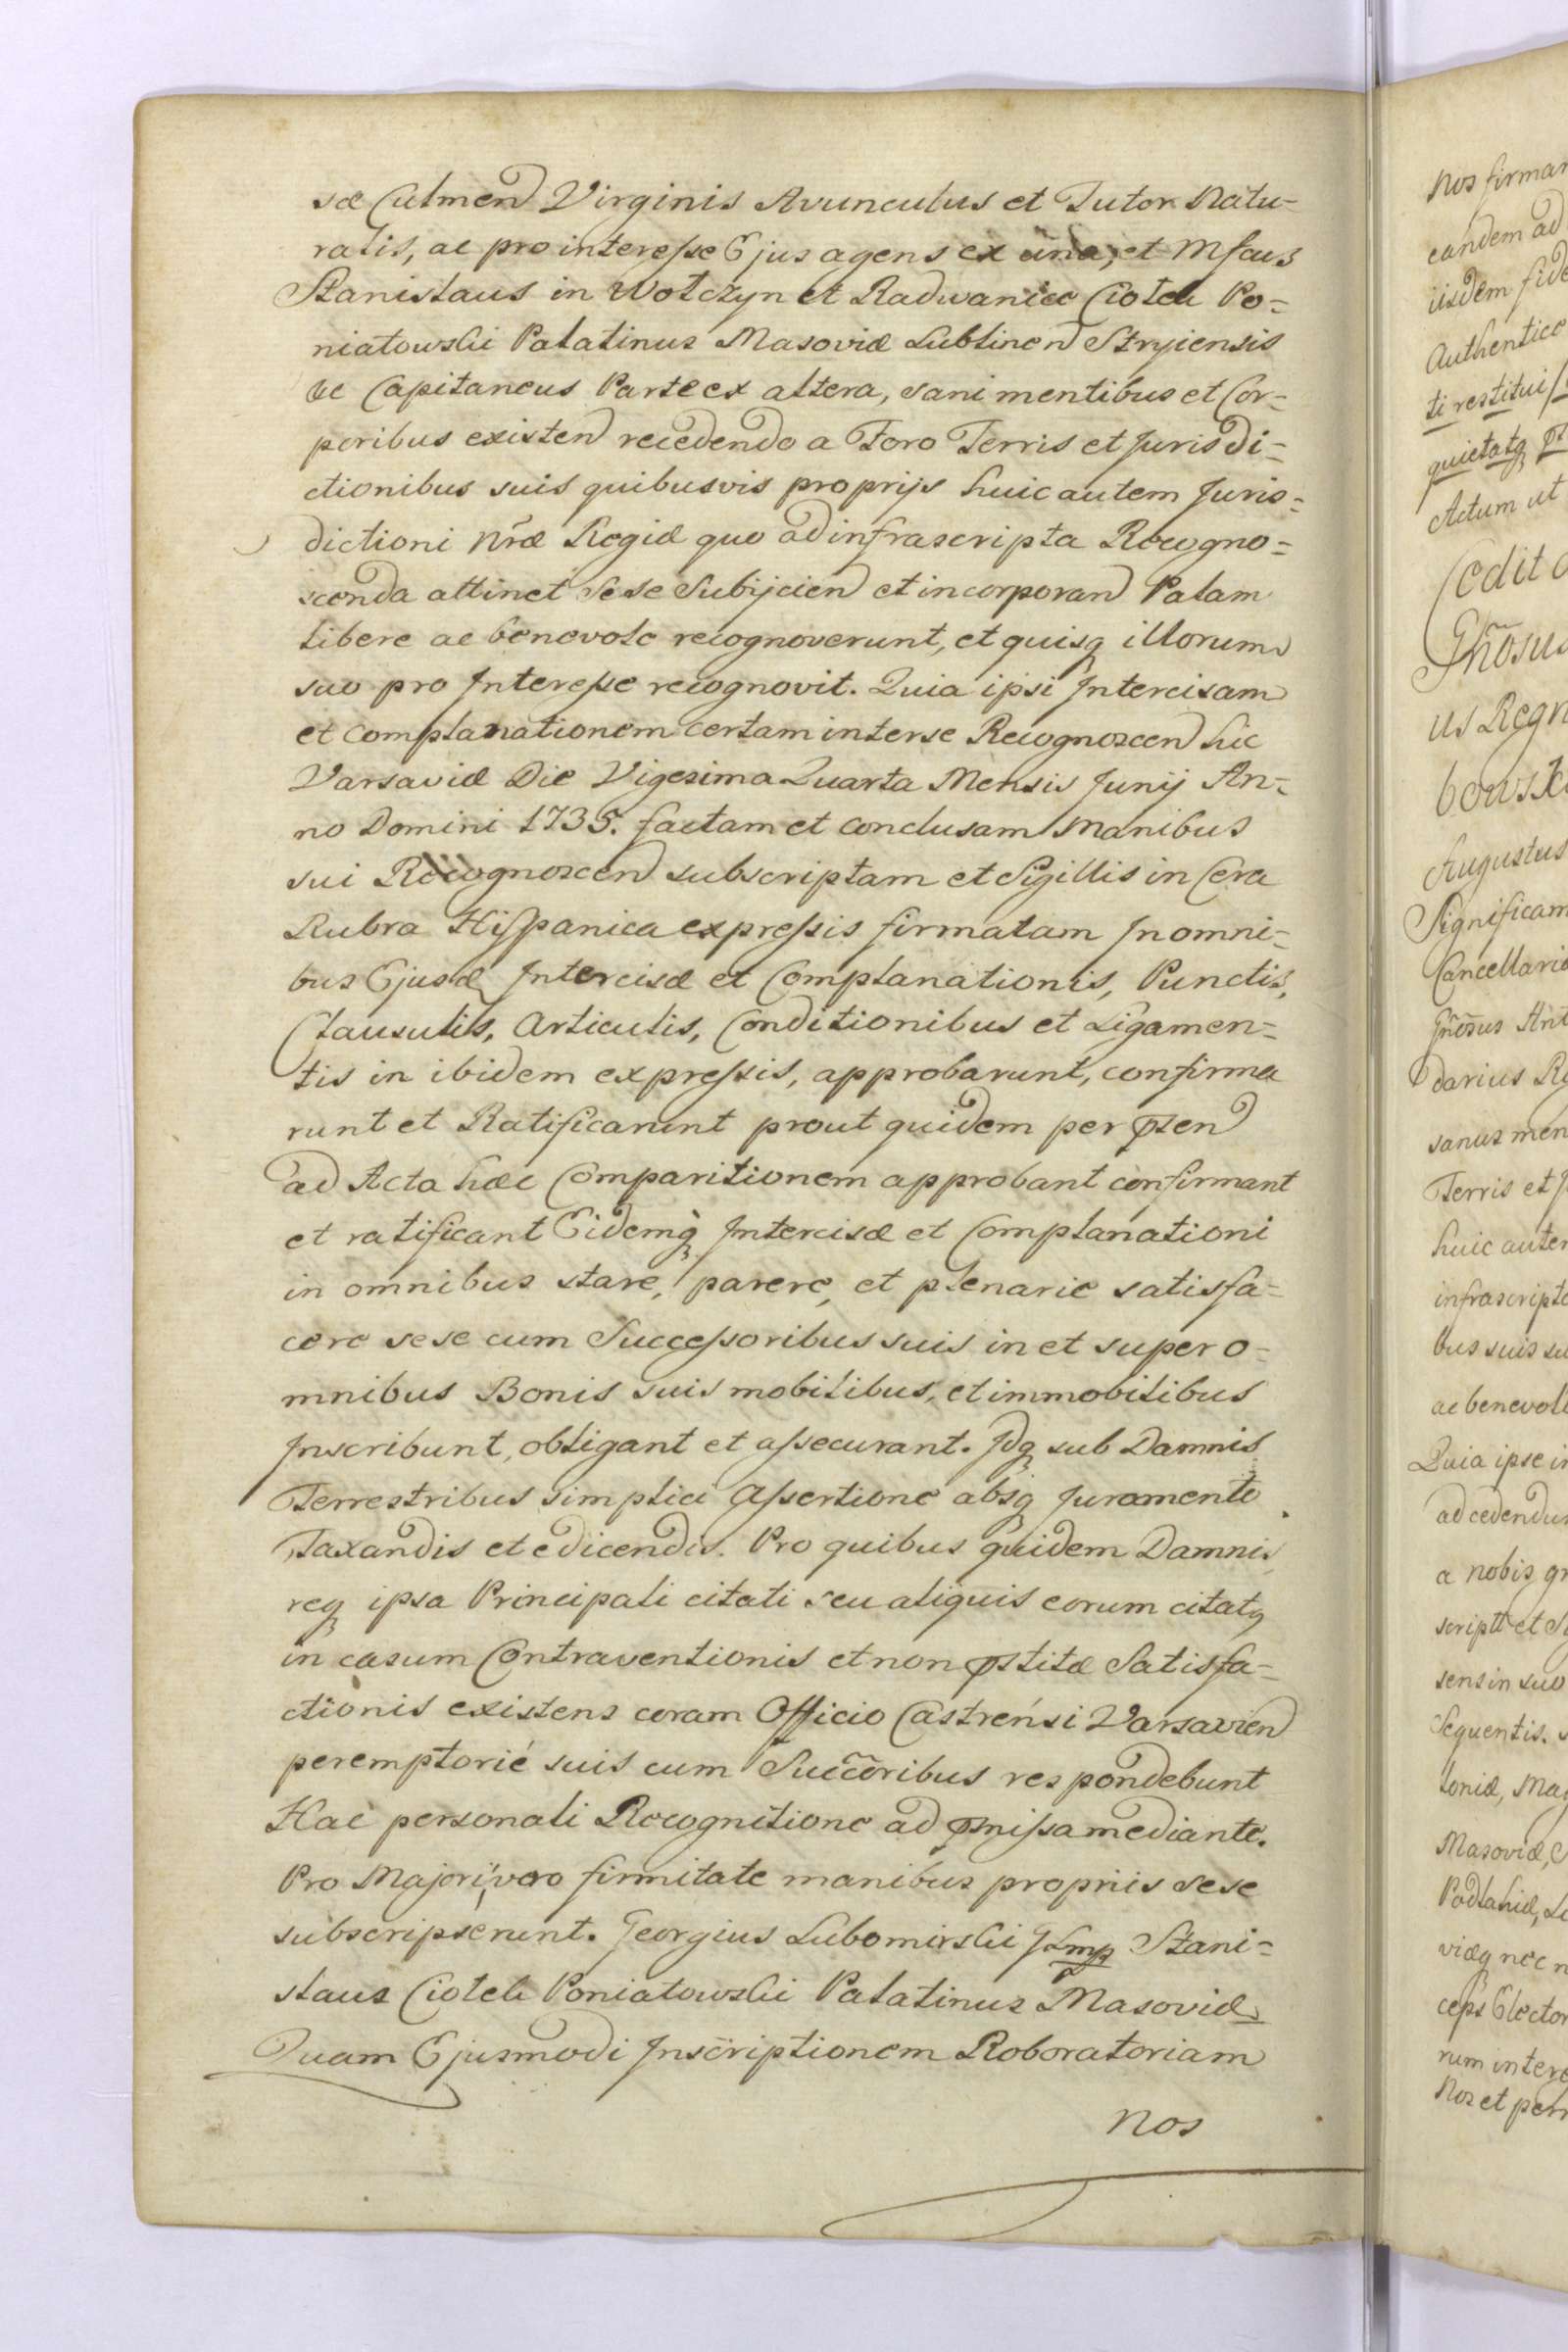 sæ Culmen Virginis Avunculus et Tutor Natu-
ralis, ac pro interesse Ejus agens ex una, et Mfcus
Stanislaus in Wołczyn et Radwaniec Ciołek Po-
niatowski Palatinus Masoviæ Lublinen Stryiensis
&c Capitaneus Parte ex altera, sani mentibus et Cor-
poribus existen recedendo a Foro Terris et Jurisdi-
ctionibus suis quibusvis proprijs huic autem Juris-
dictioni Nræ Regiæ quo ad infrascripta Recogno-
scenda attinet sese subijcien et incorporan Palam
libere ac benevole recognoverunt, et quisq illorum
suo pro Interesse recognovit. Quia ipsi Intercisam
et Complanationem certam inter se Recognoscen hic
Varsaviæ Die Vigesima Quarta Mensis Junij An-
no Domini 1735. factam et conclusam manibus
sui Recognoscen subscriptam et Sigillis in Cera
Rubra Hispanica expressis firmatam In omni-
bus Ejusd Intercisæ et Complanationis, Punctis,
Clausulis, Articulis, Conditionibus et Ligamen-
tis in ibidem expressis, approbarunt, confirma
runt et Ratificarunt prout quidem per pnsen
ad Acta hæc Comparitionem approbant confirmant
et ratificant Eidemq Intercisæ et Complanationi
in omnibus stare, parere, et plenarie satisfa-
cere sese cum Successoribus suis in et super o-
mnibus Bonis suis mobilibus, et immobilibus
Inscribunt, obligant et assecurant. Idq sub Damnis
Terrestribus simplici Assertione absq Juramento
Taxandis et edicendis. Pro quibus quidem Damnis
req ipsa Principali citati seu aliquis eorum citatq
in casum Contraventionis et non pstitæ Satisfa-
ctionis existens coram Officio Castrensi Varsavien
peremptorié suis cum Succoribus respondebunt
Hac personali Recognitione ad pmissa mediante.
Pro Majori vero firmitate manibus propriis sese
subscripserunt. Georgius Lubomirski JLmp Stani-
slaus Ciołek Poniatowski Palatinus Masoviæ
Quam Ejusmodi Inscriptionem Roboratoriam
nos
nos firmar
eandem ad
iisdem fide
Authentice
ti restitui
quietatq
Actum ut
Cedit
Gnosus
us Regn
bowski
Augustus
Significam
Cancellaria
Gnosus Ant
darius Re
sanus men
Terris et J
huic autem
infrascripta
bus suis su
ac benevole
Quia ipse in
ad cedendum
a nobis gr
script et S
sens in suo
Sequentis.
toniæ, Mag
Masoviæ,
Podlahiæ, Li
viæq nec n
ceps Elector
rum intere
Nos et per